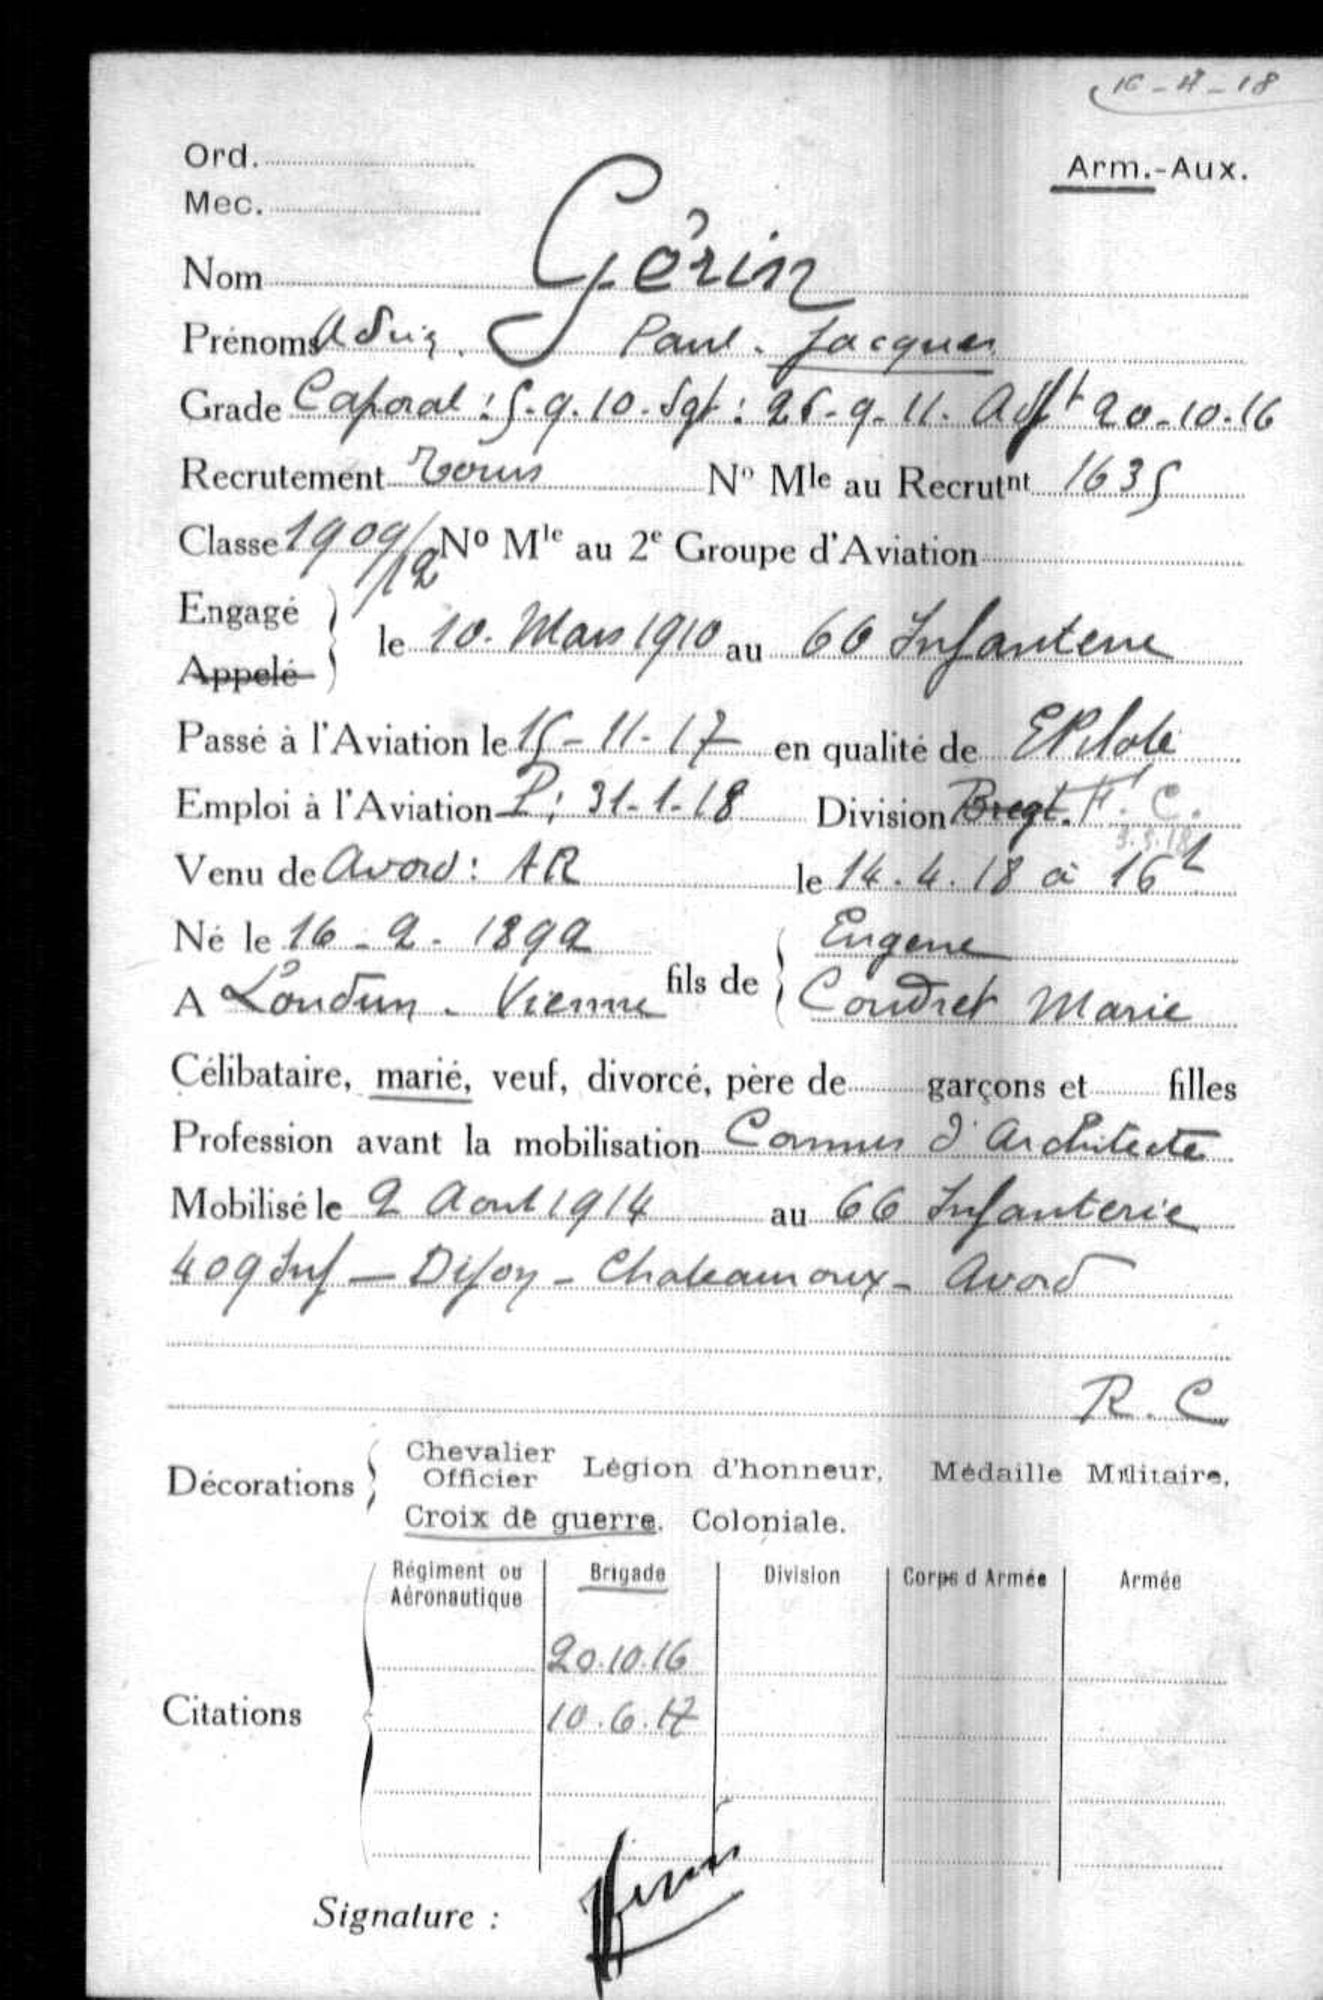 16-4-18
Ord.
Arm.-Aux.
Mec.
Nom Gérin
Prénoms Paul. Jacques
Grade Caporal : 5.9.10. Sgt : 26-9-11. Adjt 20-10-16
Recrutement Tours No Mle au Recrutnt 1635
Classe 1909/12 No Mle au 2e Groupe d'Aviation
Engagé
le 10. Mars 1910 au 66 Infanterie
Appelé
Passé à l'Aviation le 15-11-17 en qualité de EPilote
Emploi à l'Aviation P: 31-1-18 Division Bregt. C.
Venu de Avord : AR le 14.4.18 à 16h
Né le 16-2-1892 fils de Eugene
A Loudun. Vienne Coudret Marie
Célibataire, marié, veuf, divorcé, père de garçons et filles
Profession avant la mobilisation Commis d'Architecte
Mobilisé le 2 Aout 1914 au 66 Infanterie
409 Inf — Dijon - Chateauroux - Avord
R.C
Décorations Chevalier Officier Légion d'honneur, Médaille Militaire,
Croix de guerre. Coloniale.
Régiment ou Aéronautique Brigade Division Corps d Armée Armée
20.10.16
Citations
10.6.17
Signature :